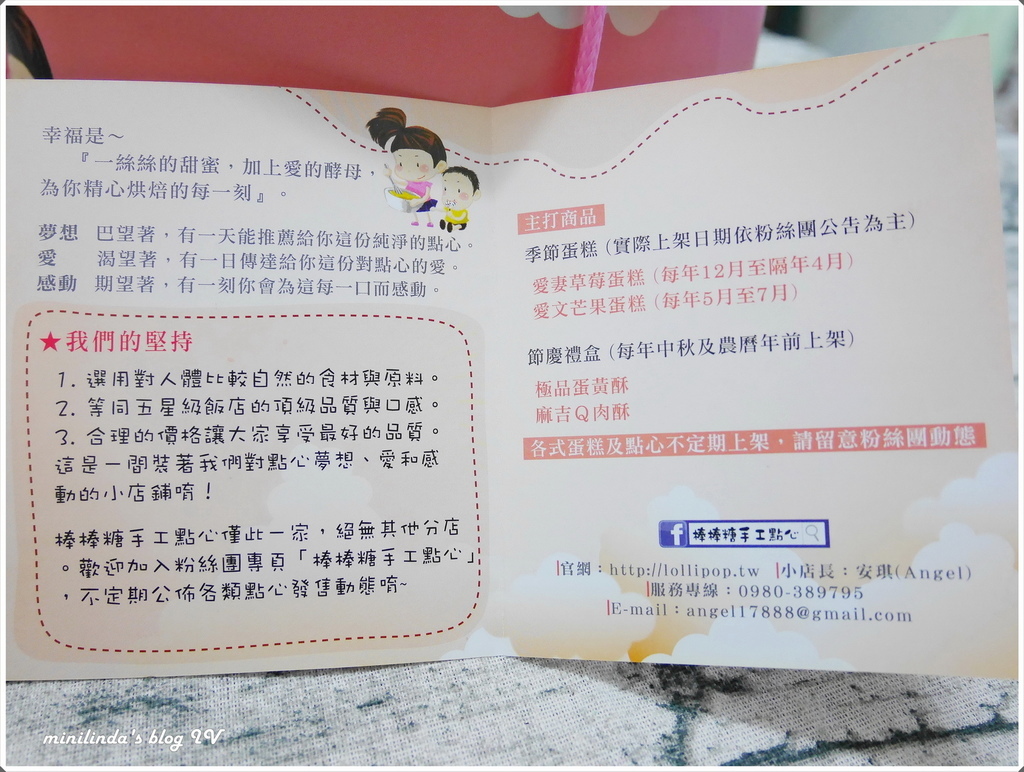 幸福是～
『一絲絲的甜蜜，加上愛的酵母，
為你精心烘焙的每一刻』。
夢想 巴望著，有一天能推薦給你這份純淨的點心。
愛 渴望著，有一日傳達給你這份對點心的愛。
感動 期望著，有一刻你會為這每一口而感動。
★我們的堅持
1. 選用對人體比較自然的食材與原料。
2. 等同五星級飯店的頂級品質與口感。
3. 合理的價格讓大家享受最好的品質。
這是一間裝著我們對點心夢想、愛和感
動的小店鋪唷！
棒棒糖手工點心僅此一家，絕無其他分店
。歡迎加入粉絲團專頁「棒棒糖手工點心」
，不定期公佈各類點心發售動態唷~
主打商品
季節蛋糕（實際上架日期依粉絲團公告為主）
愛妻草莓蛋糕（每年12月至隔年4月）
愛文芒果蛋糕（每年5月至7月）
節慶禮盒（每年中秋及農曆年前上架）
極品蛋黃酥
麻吉Q肉酥
各式蛋糕及點心不定期上架，請留意粉絲團動態
f 棒棒糖手工點心
|官網：http://lollipop.tw |小店長：安琪(Angel)
|服務專線：0980-389795
|E-mail：angel17888@gmail.com
minilinda's blog IV